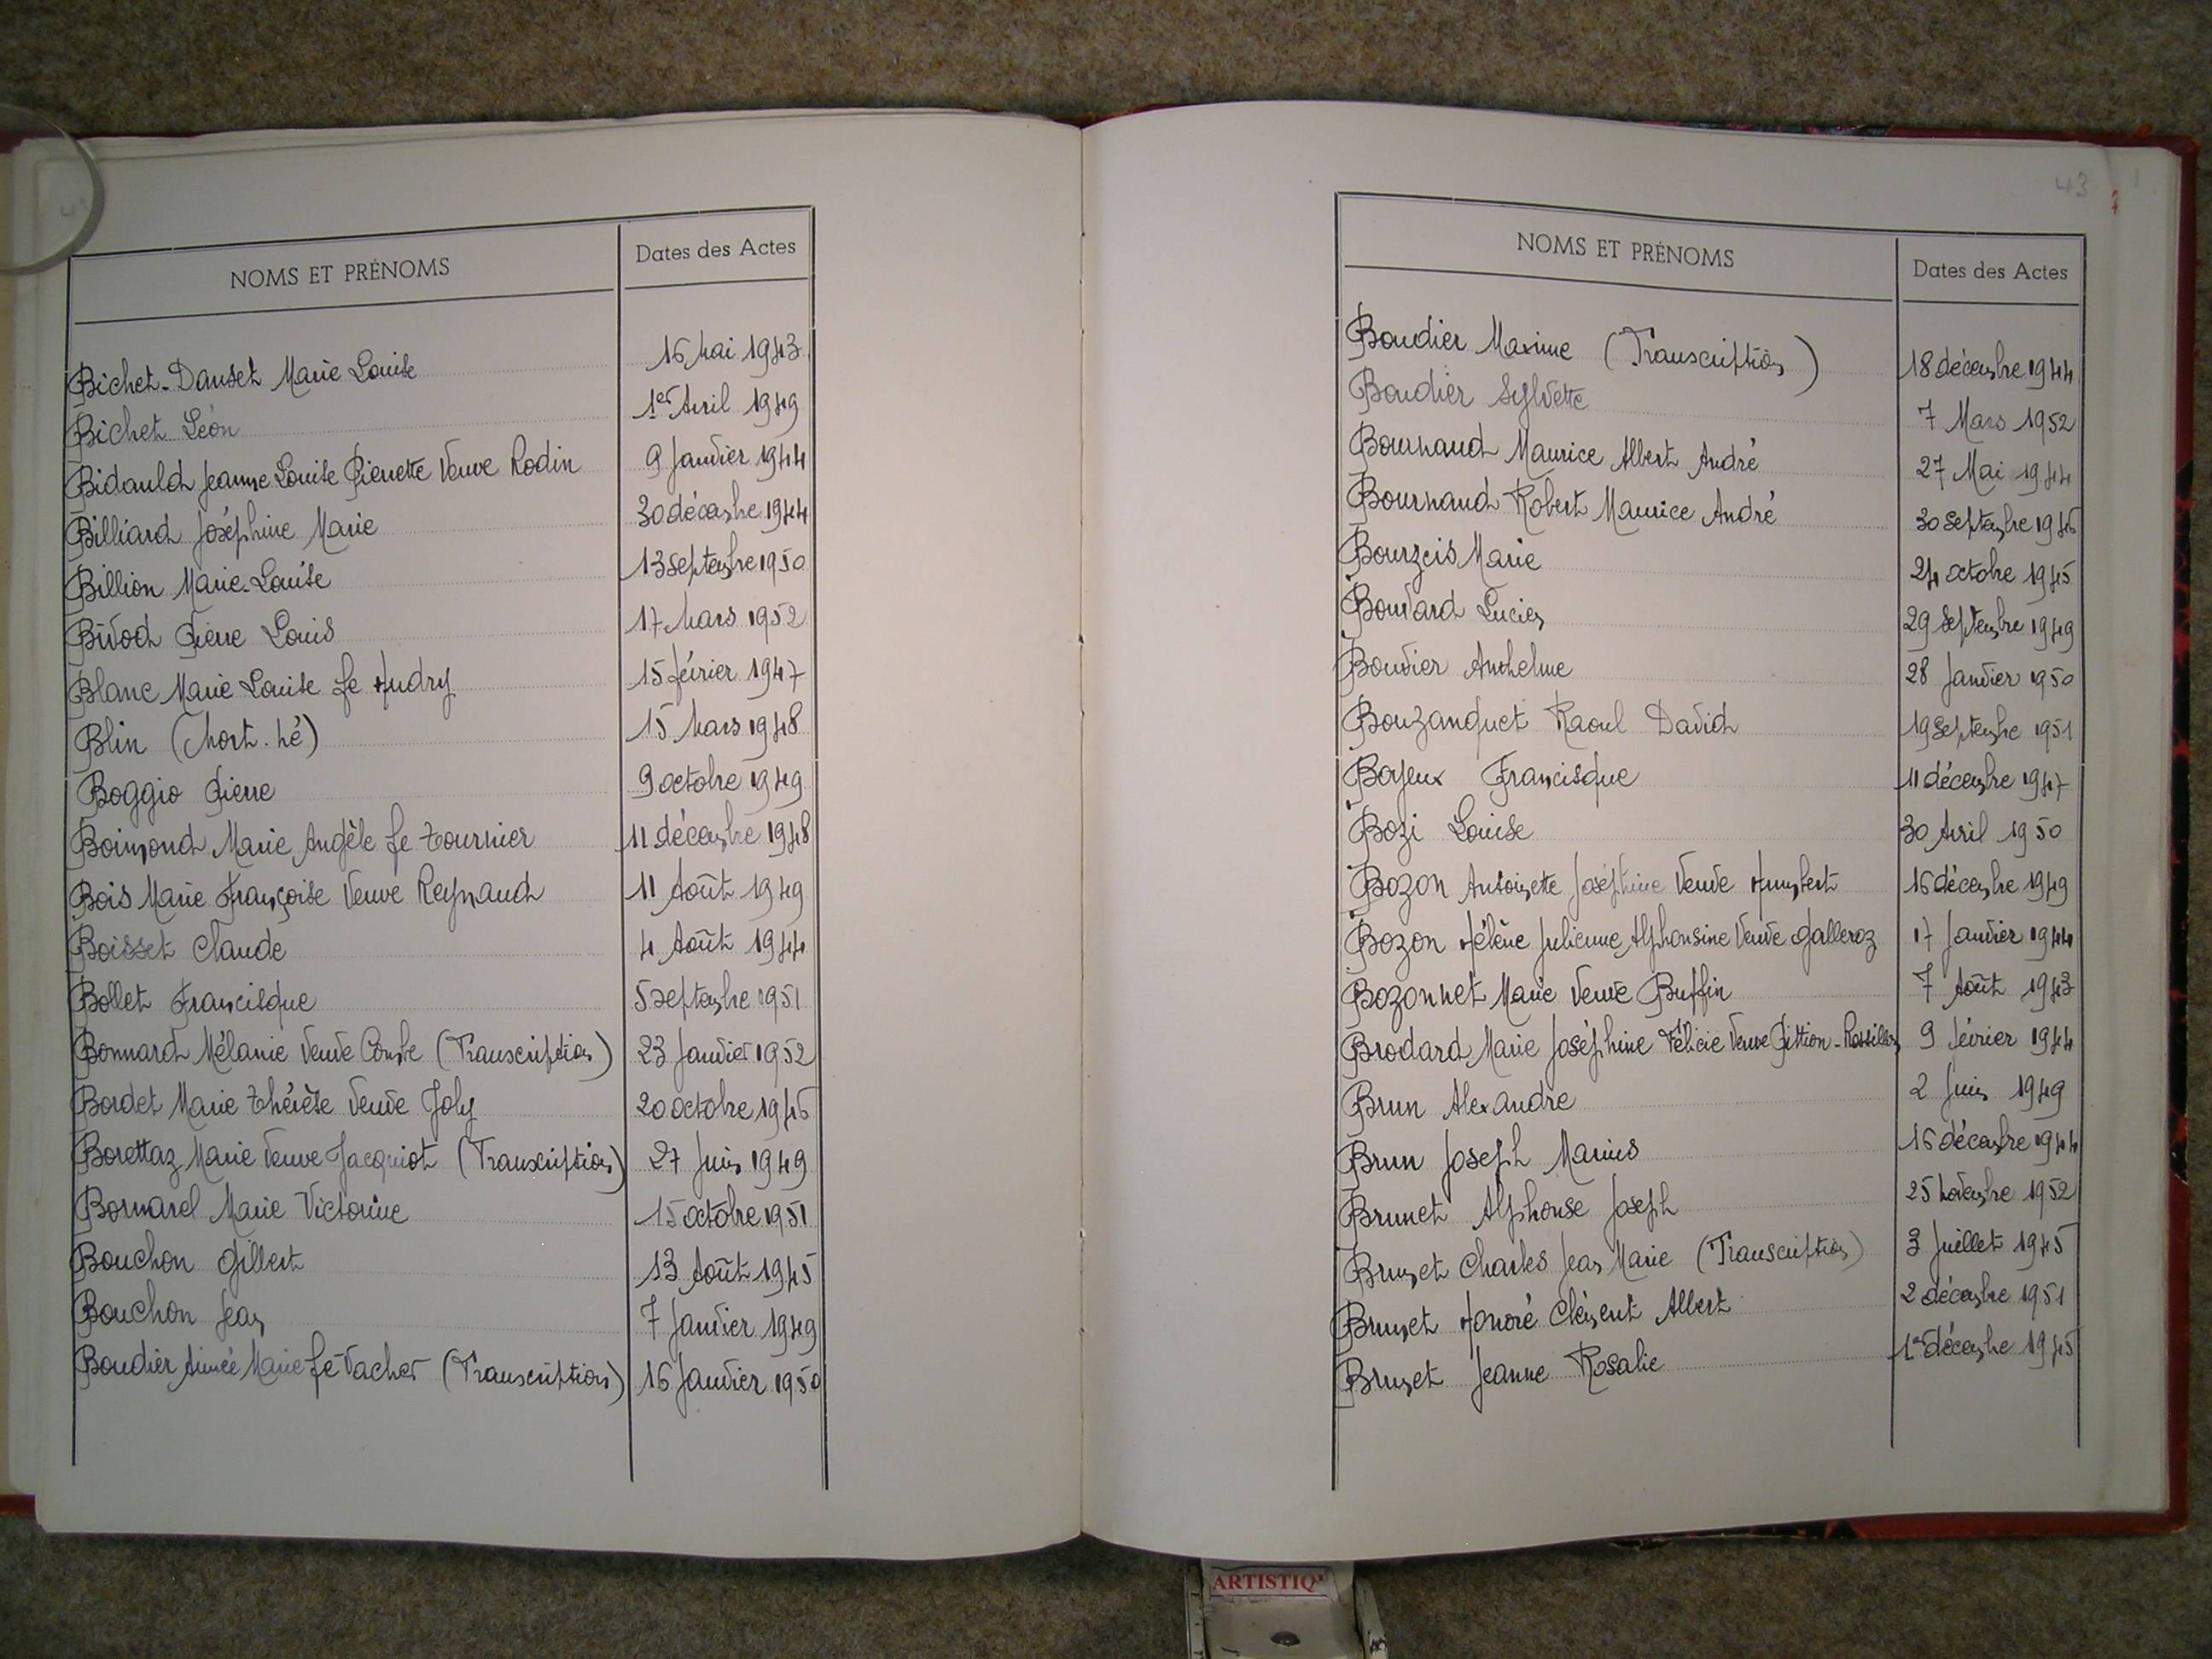 NOMS ET PRÉNOMS Dates des Actes
Bichet-Danset Marie Louise 16 Mai 1943
Bichet Léon 1er Avril 1949
Bidauld Jeanne Louise Pierrette Veuve Rodin 9 Janvier 1944
Billiard Joséphine Marie 30 décembre 1944
Billion Marie-Louise 13 septembre 1950
Bivod Pierre Louis 17 Mars 1952
Blanc Marie Louise fe Audry 15 février 1947
Blin (Mort-né) 15 Mars 1948
Boggio Pierre 9 octobre 1949
Boimond Marie Angèle fe Tournier 11 décembre 1948
Bois Marie Françoise Veuve Reynaud 11 Août 1949
Boisset Claude 4 Août 1944
Bollet Francisque 5 septembre 1951
Bonnard Mélanie Veuve Combe (Transcription) 23 Janvier 1952
Bordet Marie Thérèse Veuve Joly 20 octobre 1946
Borettaz Marie Veuve Jacquiot (Transcription) 27 Juin 1949
Bornarel Marie Victorine 15 octobre 1951
Bouchon Gilbert 13 Août 1945
Bouchon Jean 7 Janvier 1949
Boudier Aimée Marie fe Vacher (Transcription) 16 Janvier 1950
43
NOMS ET PRÉNOMS Dates des Actes
Boudier Maxime (Transcription) 18 décembre 1944
Boudier Sylvette 7 Mars 1952
Bournaud Maurice Albert André 27 Mai 1944
Bournaud Robert Maurice André 30 septembre 1946
Bourzeis Marie 24 octobre 1945
Bouvard Lucien 29 septembre 1949
Bouvier Anthelme 28 Janvier 1950
Bouzanquet Raoul David 19 septembre 1951
Boyeux Francisque 11 décembre 1947
Bozi Louise 30 Avril 1950
Bozon Antoinette Joséphine Veuve Humbert 16 décembre 1949
Bozon Hélène Julienne Alphonsine Veuve Galleroz 17 Janvier 1944
Bozonnet Marie Veuve Buffin 7 Août 1943
Brodard Marie Joséphine Félicie Veuve Pittion-Rossillon 9 février 1944
Brun Alexandre 2 Juin 1949
Brun Joseph Marius 16 décembre 1944
Brunet Alphonse Joseph 25 Novembre 1952
Brunet Charles Jean Marie (Transcription) 3 Juillet 1945
Brunet Honoré Clément Albert 2 décembre 1951
Brunet Jeanne Rosalie 1er décembre 1945
ARTISTIQ